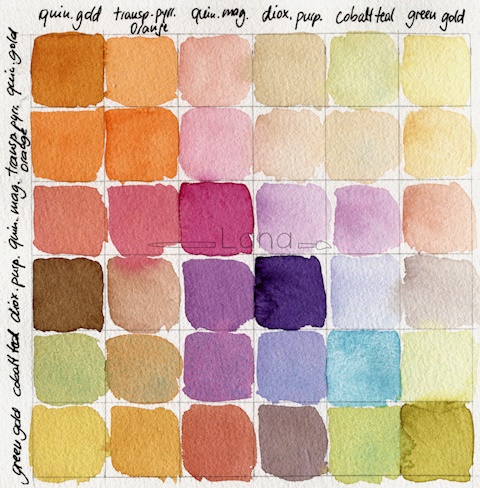 quin.gold transp.pyrr. orange quin.mag. diox.purp. cobalt teal green gold
quin.gold
transp.pyrr. orange
quin.mag.
Lana
diox.purp.
cobalt teal
green gold